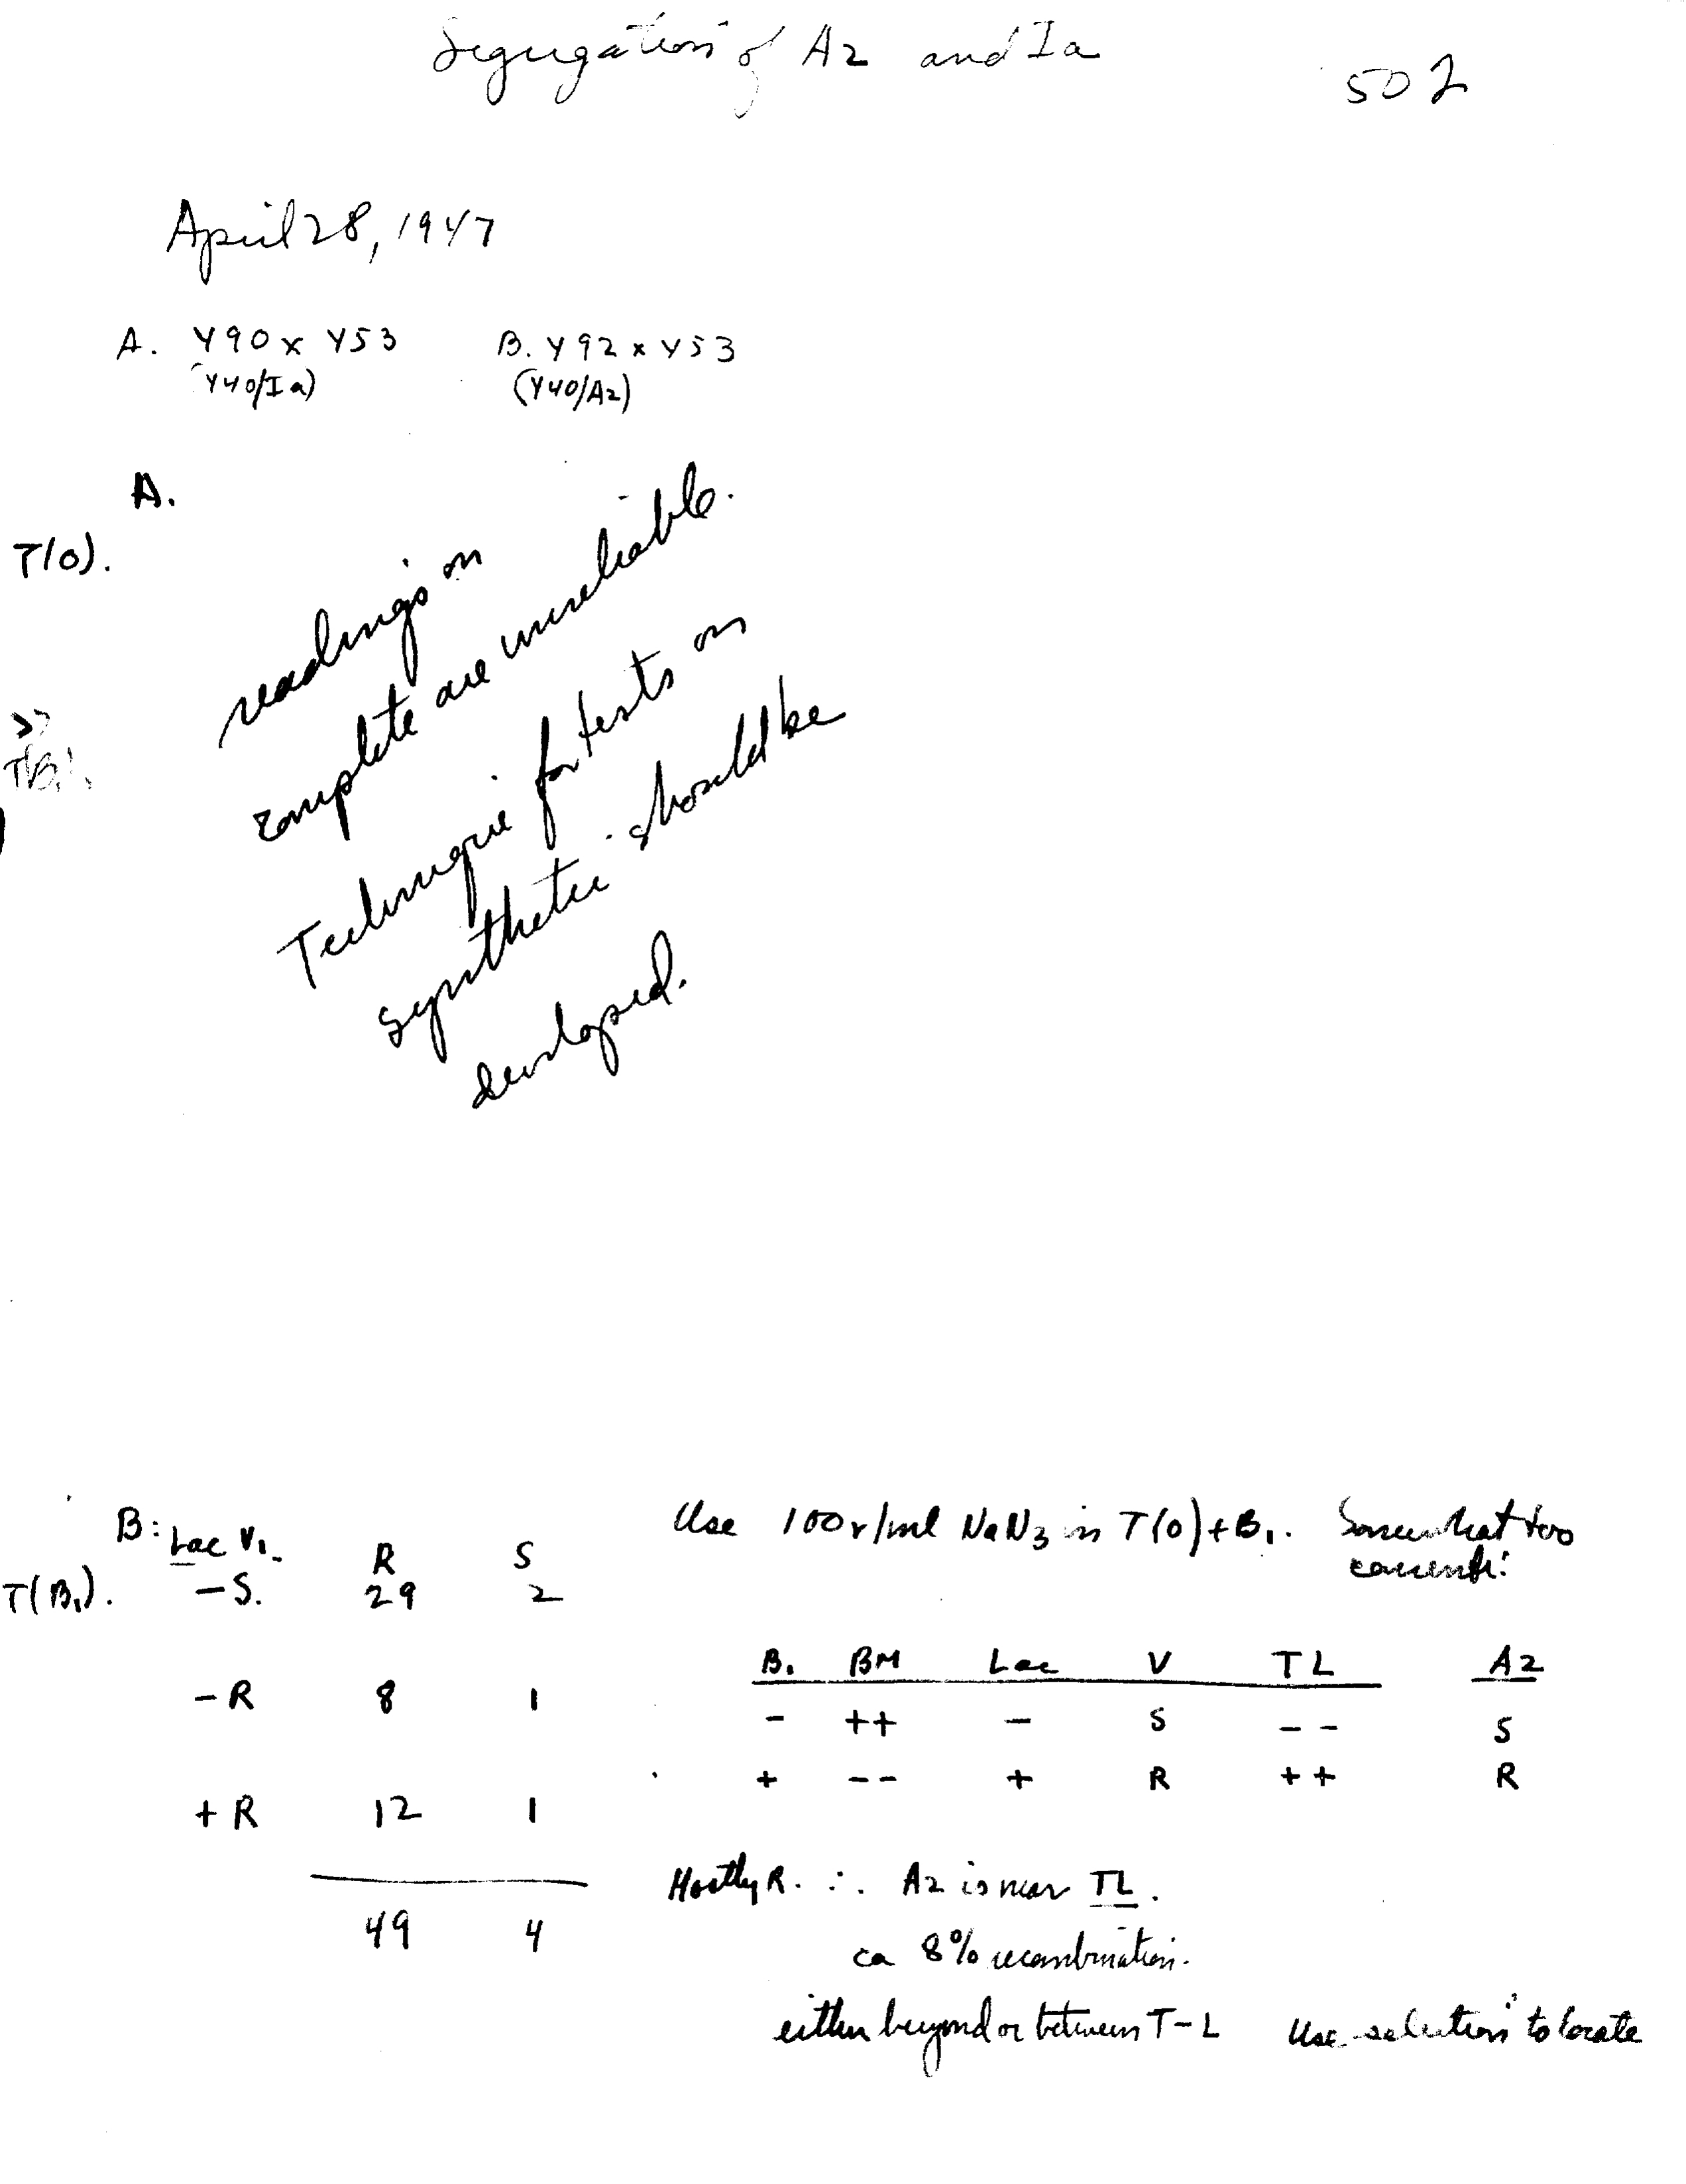 Segregation of Az and Ia
502
April 28, 1947
A. Y90 x Y53 B. Y92 x Y53
(Y40/Ia) (Y40/Az)
A.
T(0).
readings on
complete are unreliable.
Technique for tests on
synthetic should be
developed.
B: Lac V1. R S
T(B1). - S. 29 2
- R 8 1
+ R 12 1
49 4
Use 100γ/ml NaN3 in T(0)+B1. Somewhat too
B1 BM Lac V TL Az
- ++ - S -- S
+ -- + R ++ R
Mostly R. ∴ Az is near TL.
ca 8% recombination.
either beyond or between T-L Use selection to locate